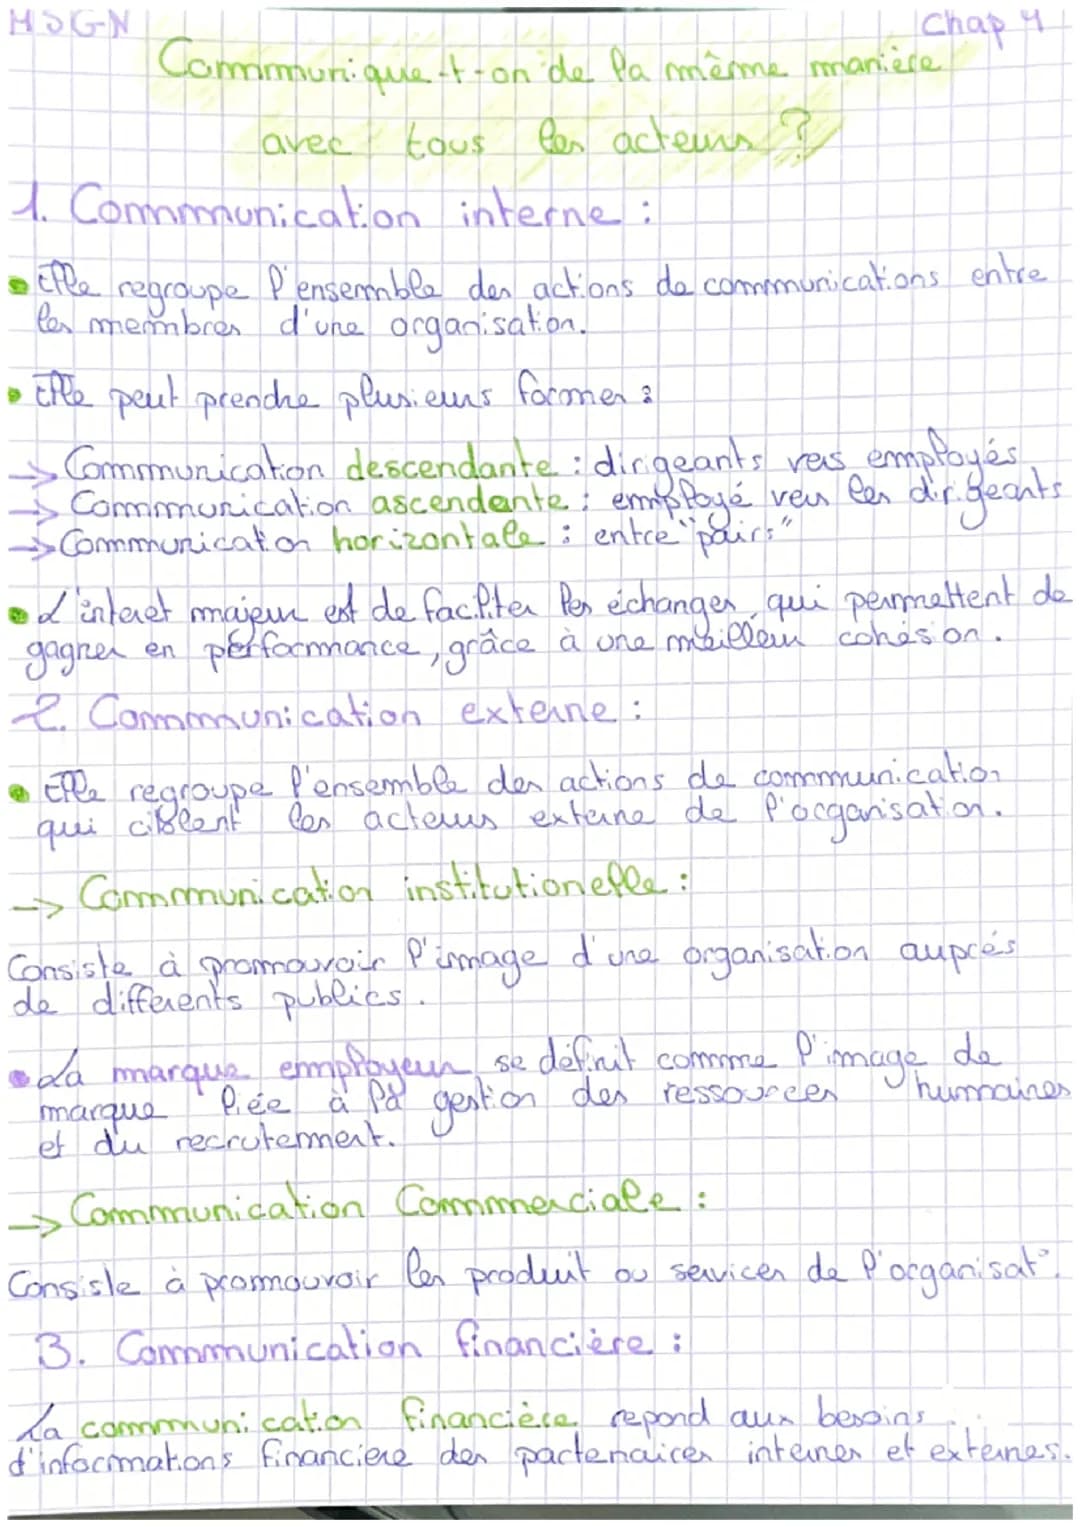 MSGN Chap 4
Communique-t-on de la même manière
avec tous les acteurs ?
1. Communication interne :
Elle regroupe l'ensemble des actions de communications entre
les membres d'une organisation.
Elle peut prendre plusieurs formes :
→ Communication descendante : dirigeants vers employés
→ Communication ascendante : employé vers les dirigeants
→ Communication horizontale : entre "pairs"
L'interet majeur est de faciliter les échanges, qui permettent de
gagner en performance, grâce à une meilleur cohésion.
2. Communication externe :
Elle regroupe l'ensemble des actions de communication
qui ciblent les acteurs externe de l'organisation.
→ Communication institutionelle :
Consiste à promouvoir l'image d'une organisation auprés
de differents publics.
La marque employeur se définit comme l'image de
marque liée à la gestion des ressources humaines
et du recrutement.
→ Communication Commerciale :
Consiste à promouvoir les produit ou services de l'organisat°.
3. Communication financière :
La communication financière repond aux besoins
d'informations financiere des partenaires internes et externes.